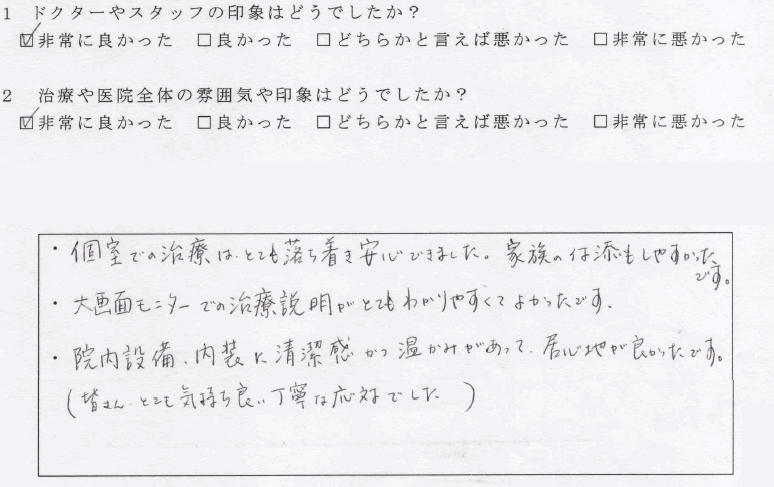 1 ドクターやスタッフの印象はどうでしたか？
☑非常に良かった □良かった □どちらかと言えば悪かった □非常に悪かった
2 治療や医院全体の雰囲気や印象はどうでしたか？
☑非常に良かった □良かった □どちらかと言えば悪かった □非常に悪かった
・個室での治療は、とても落ち着き安心できました。家族の付添もしやすかった
です。
・大画面モニターでの治療説明がとてもわかりやすくてよかったです。
・院内設備、内装に清潔感かつ温かみがあって、居心地が良かったです。
(皆さん、とても気持ち良い丁寧な応対でした )